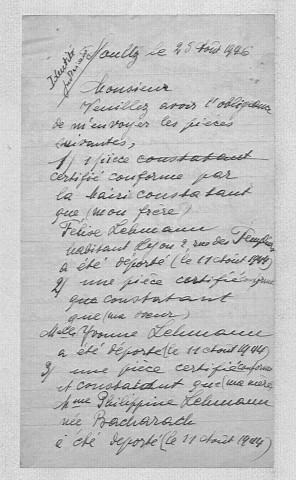 Neuilly le 25 août 1946
Identité
Monsieur
Veuillez avoir l'obligeance
de m'envoyer les pièces
suivantes,
1) 1 pièce constatant
certifié conforme par
la Mairi constatant
que (mon frère)
Félise Lehmann
habitant Lyon 2, rue des Templiers
a été déporté (le 11 août 1944)
2) une pièce certifié
que constatant
que (ma sœur)
Melle Yvonne Lehmann
a été déporté (le 11 août 1944)
3) une pièce certifié conforme
et constatant que (ma mère
Mme Philippine Lehmann
née Bacharach
a été déporté (le 11 août 1944)